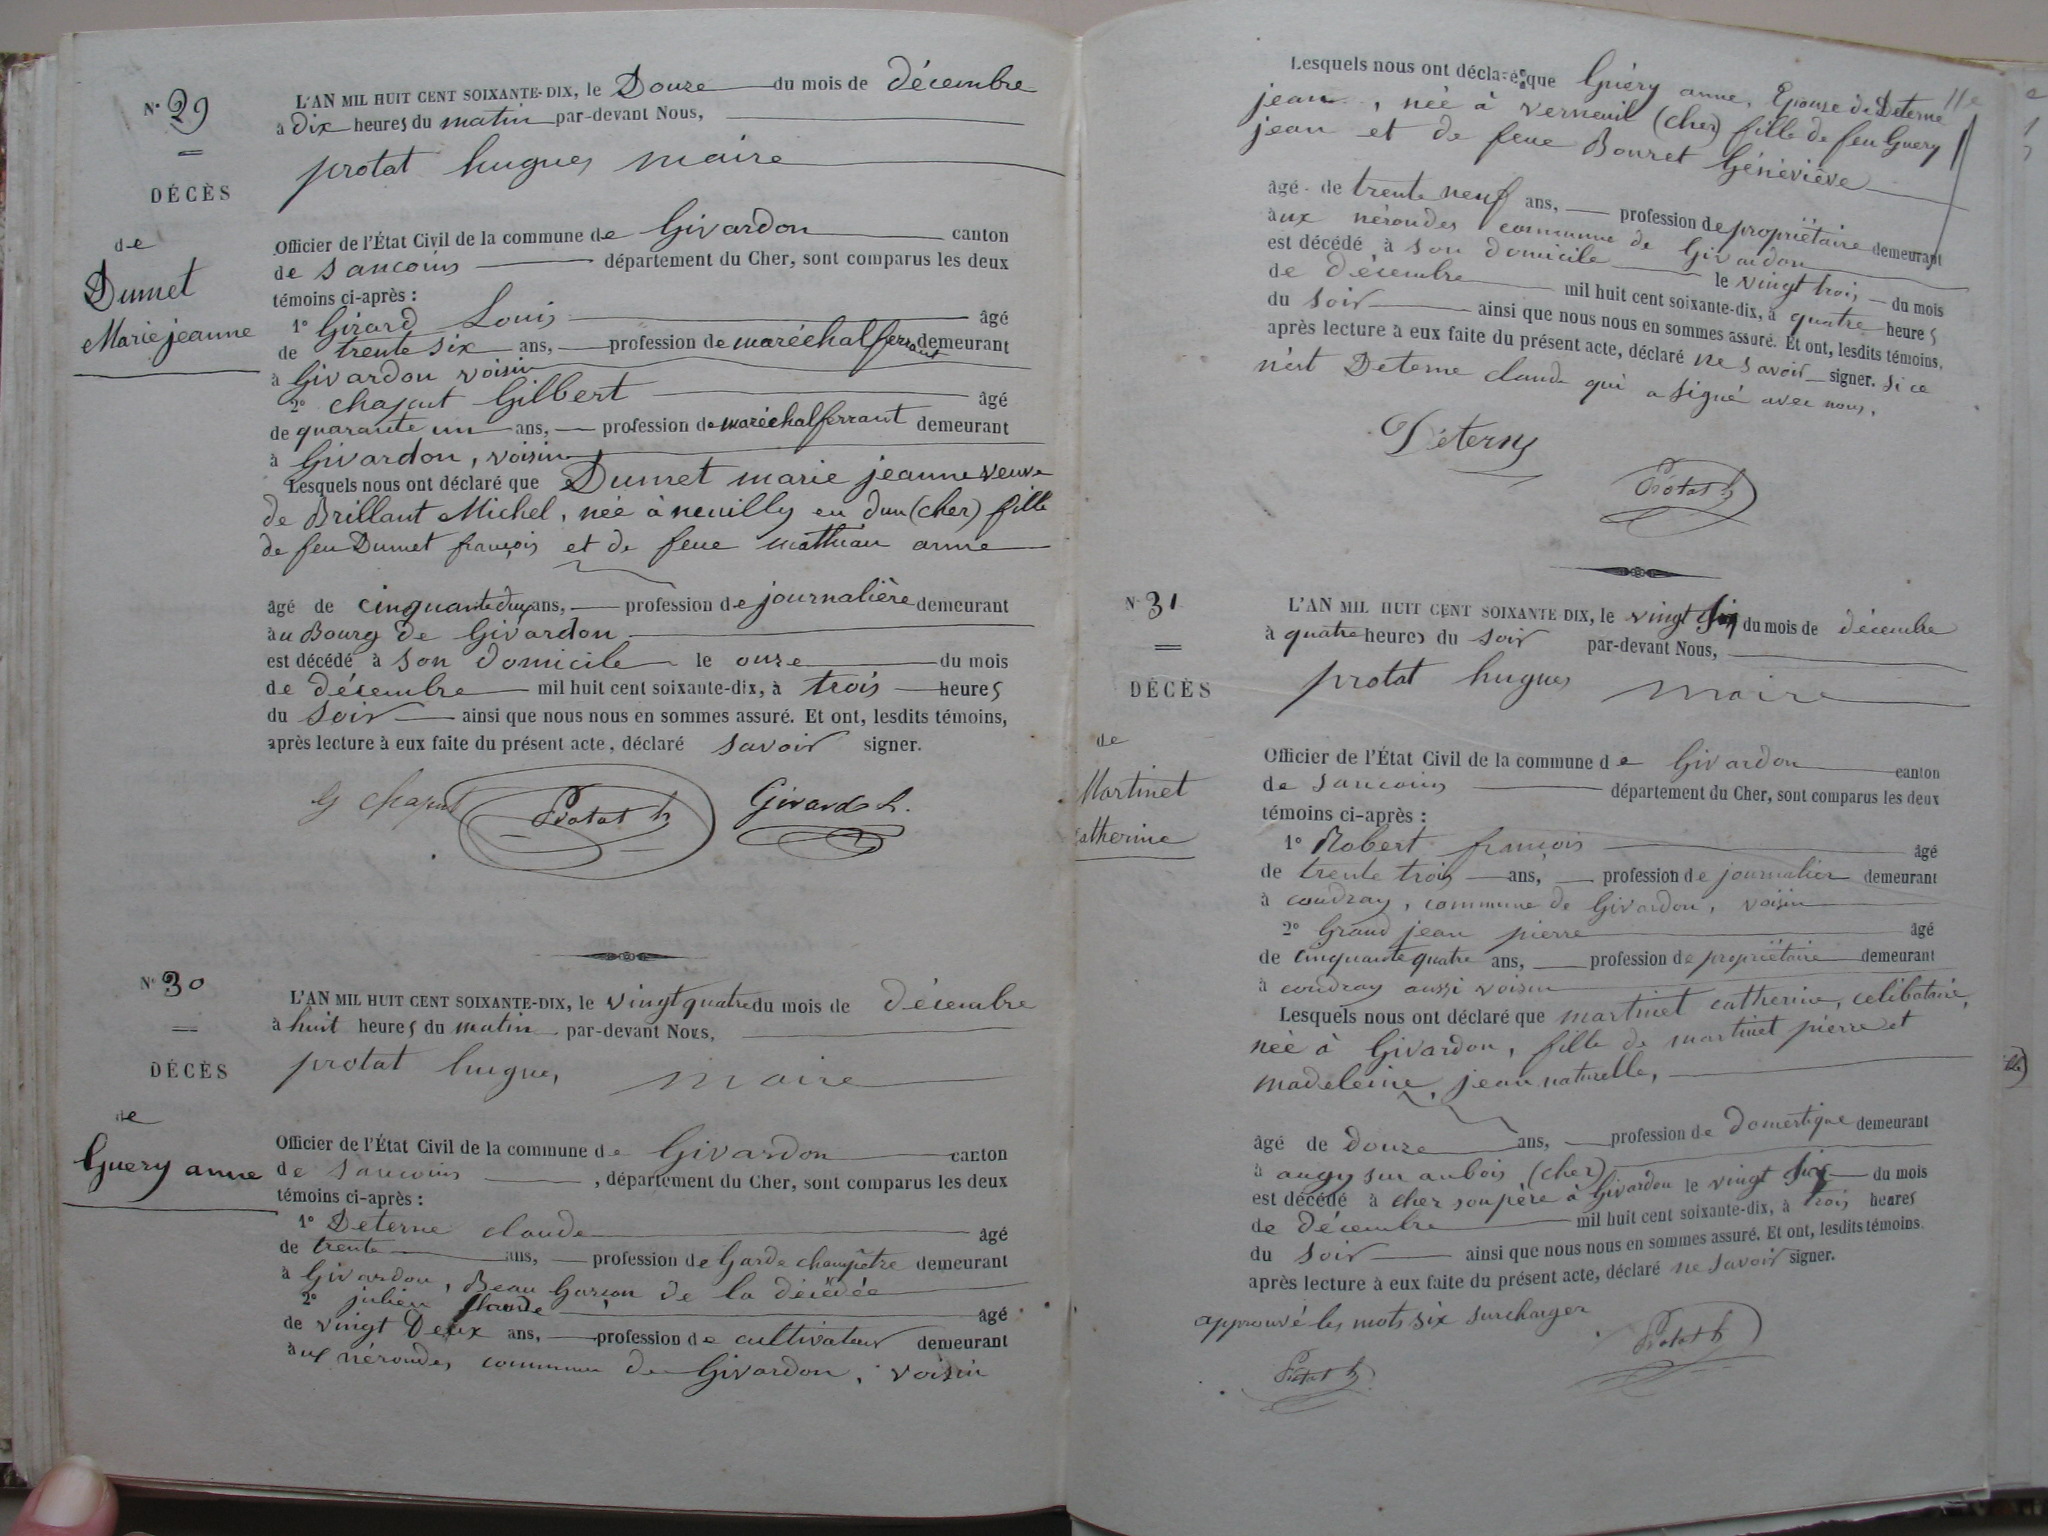 N° 29
DÉCÈS
de
Dumet
Marie jeanne
L'AN MIL HUIT CENT SOIXANTE-DIX, le Douze du mois de décembre
à dix heures du matin par-devant Nous,
protat hugues maire
Officier de l'État Civil de la commune de Givardon canton
de Sancoins département du Cher, sont comparus les deux
témoins ci-après :
1° Girard Louis âgé
de trente six ans, profession de maréchal ferrant demeurant
à Givardon voisin
2° chaput Gilbert âgé
de quarante un ans, profession de maréchal ferrant demeurant
à Givardon, voisin
Lesquels nous ont déclaré que Dumet marie jeanne veuve
de Brillant Michel, née à neuilly en dun (cher) fille
de feu Dumet françois et de feue anne
âgé de cinquante deux ans, profession de journalière demeurant
au Bourg de Givardon
est décédé à son domicile le onze du mois
de décembre mil huit cent soixante-dix, à trois heures
du soir ainsi que nous nous en sommes assuré. Et ont, lesdits témoins,
après lecture à eux faite du présent acte, déclaré savoir signer.
G Chaput Protat h Girard L.
N° 30
DÉCÈS
de
Guery anne
L'AN MIL HUIT CENT SOIXANTE-DIX, le vingt quatre du mois de décembre
à huit heures du matin par-devant Nous,
protat hugues maire
Officier de l'État Civil de la commune de Givardon canton
de Sancoins , département du Cher, sont comparus les deux
témoins ci-après :
1° Deterne claude âgé
de trente ans, profession de Garde champêtre demeurant
à Givardon, Beau Garson de la décédée
2° julien âgé
de vingt Deux ans, profession de cultivateur demeurant
aux nérondes commune de Givardon, voisin
Lesquels nous ont déclaré que Guéry anne, Epouse de Deterne
jean, née à verneuil (cher) fille de feu Guery
jean et de feue Bouret Géneviève
âgé de trente neuf ans, profession de propriétaire demeurant
aux nérondes commune de Givardon
est décédé à son domicile le vingt trois du mois
de décembre mil huit cent soixante-dix, à quatre heures
du soir ainsi que nous nous en sommes assuré. Et ont, lesdits témoins,
après lecture à eux faite du présent acte, déclaré ne savoir signer. si ce
n'est Deterne claude qui a signé avec nous,
Déterne
Protat h
N° 31
DÉCÈS
de
Martinet
Catherine
L'AN MIL HUIT CENT SOIXANTE DIX, le vingt six du mois de décembre
à quatre heures du soir par-devant Nous,
protat hugues maire
Officier de l'État Civil de la commune de Givardon canton
de Sancoins département du Cher, sont comparus les deux
témoins ci-après :
1° Robert françois âgé
de trente trois ans, profession de journalier demeurant
à coudray, commune de Givardon, voisin
2° Grand jean pierre âgé
de cinquante quatre ans, profession de propriétaire demeurant
à coudray aussi voisin
Lesquels nous ont déclaré que martinet catherine, celibataire,
née à Givardon, fille de martinet pierre et
madeleine, jean naturelle,
âgé de douze ans, profession de Domestique demeurant
à augy sur aubois (cher)
est décédé à cher son père à Givardon le vingt six du mois
de décembre mil huit cent soixante-dix, à trois heures
du soir ainsi que nous nous en sommes assuré. Et ont, lesdits témoins,
après lecture à eux faite du présent acte, déclaré ne savoir signer.
approuvé les mots six surcharger
Protat h Protat h